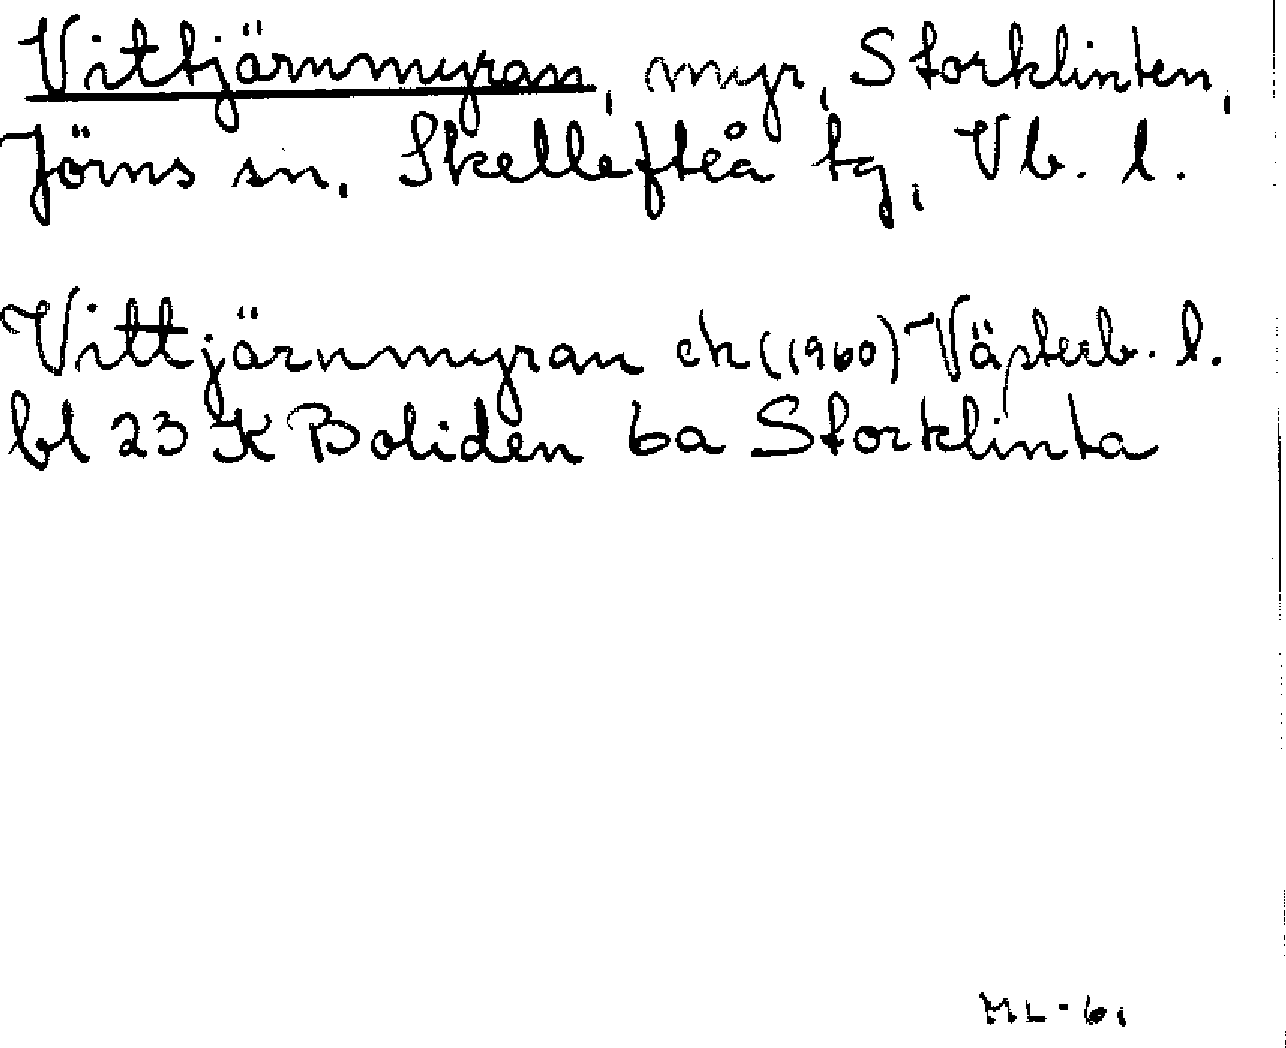 Vittjärnmyran, myr, Storklinten,
Jörns sn, Skellefteå tg, Vb. l.
Vittjärnmyran ek (1960) Västerb. l.
bl 23 K Boliden 6a Storklinta
ML-61